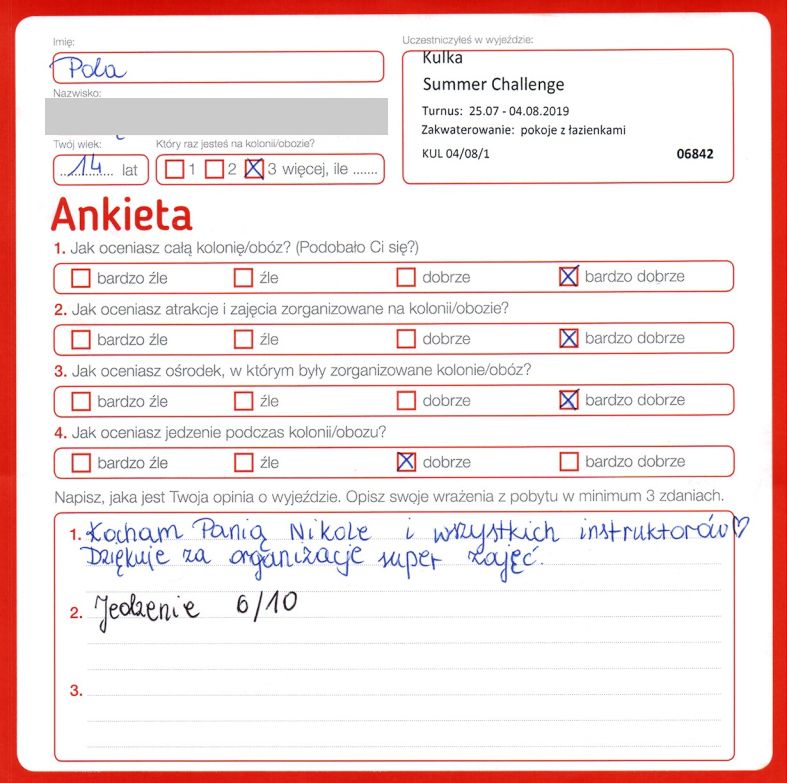 Imię:
Pola
Nazwisko:
Twój wiek:
14 lat
Który raz jesteś na kolonii/obozie?
1 2 3 więcej, ile .......
Uczestniczyłeś w wyjeździe:
Kulka
Summer Challenge
Turnus: 25.07 - 04.08.2019
Zakwaterowanie: pokoje z łazienkami
KUL 04/08/1 06842
Ankieta
1. Jak oceniasz całą kolonię/obóz? (Podobało Ci się?)
bardzo źle źle dobrze bardzo dobrze
2. Jak oceniasz atrakcje i zajęcia zorganizowane na kolonii/obozie?
bardzo źle źle dobrze bardzo dobrze
3. Jak oceniasz ośrodek, w którym były zorganizowane kolonie/obóz?
bardzo źle źle dobrze bardzo dobrze
4. Jak oceniasz jedzenie podczas kolonii/obozu?
bardzo źle źle dobrze bardzo dobrze
Napisz, jaka jest Twoja opinia o wyjeździe. Opisz swoje wrażenia z pobytu w minimum 3 zdaniach.
1. Kocham Panią Nikole i wszystkich instruktorów♡
Dziękuje za organizacje super zajęć.
2. Jedzenie 6/10
3.